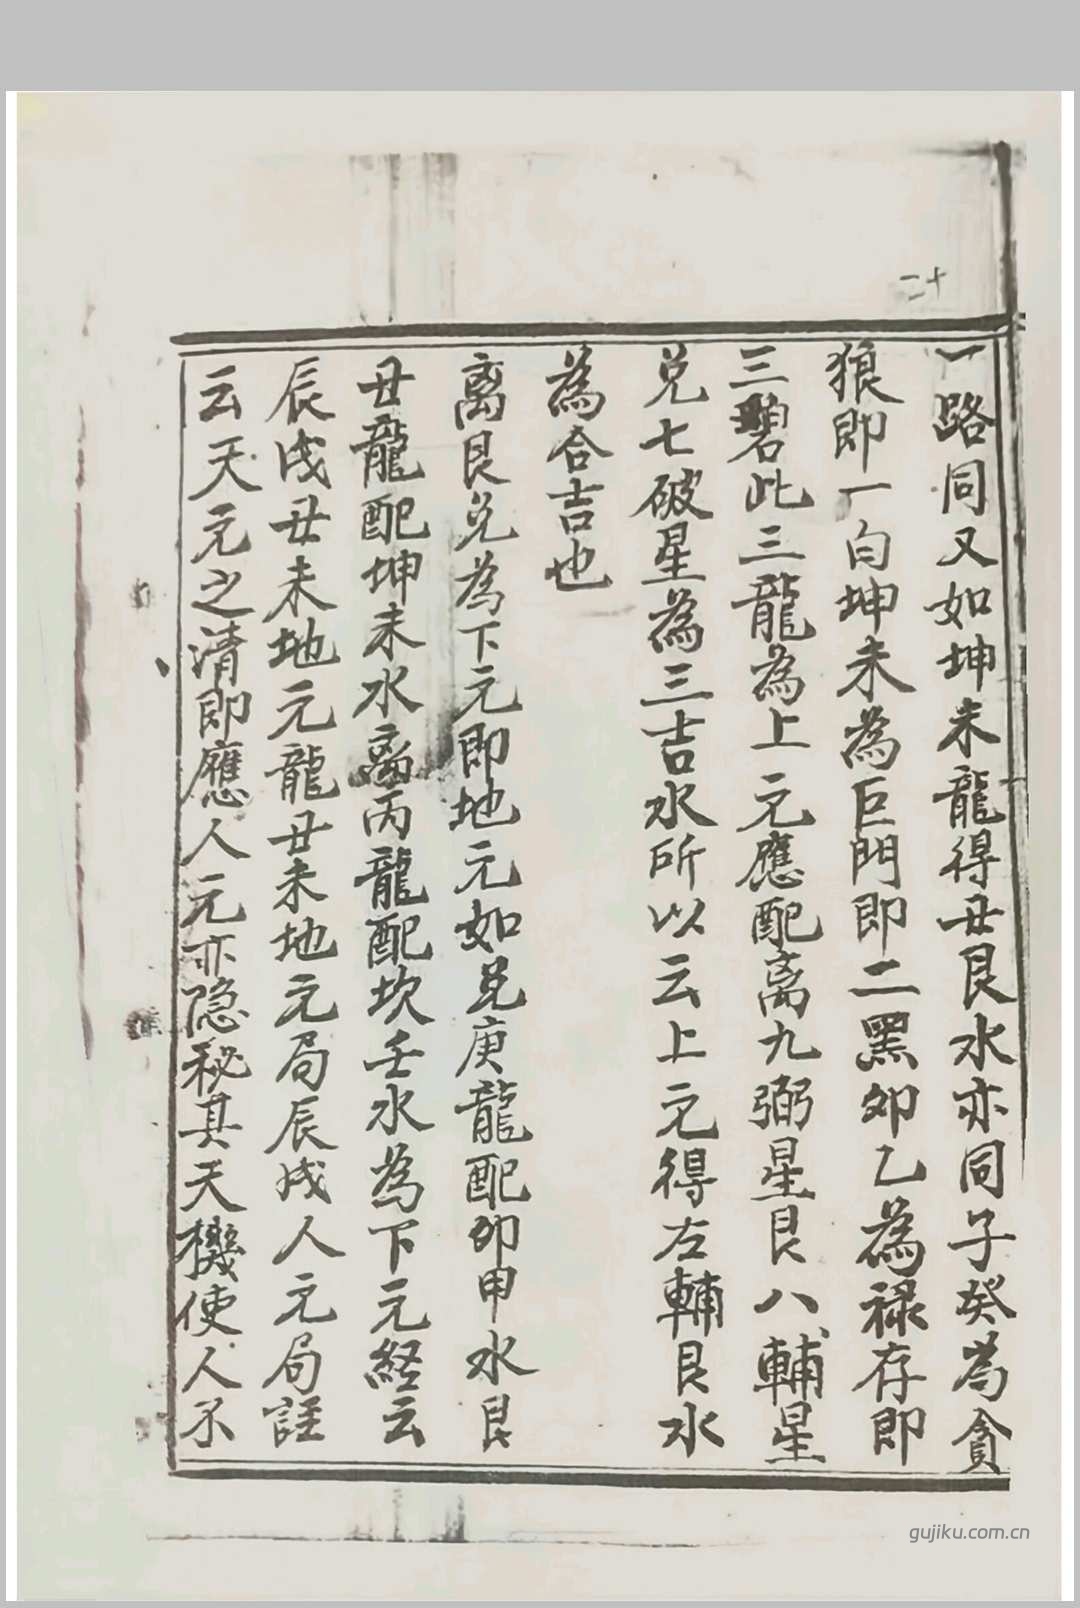 二十
一路同又如坤未龍得丑艮水亦同子癸為貪
狼即一白坤未為巨門即二黑卯乙為祿存即
三碧此三龍為上元應配离九弼星艮八輔星
兑七破星為三吉水所以云上元得左輔艮水
為合吉也
离艮兑為下元即地元如兑庚龍配卯甲水艮
丑龍配坤未水离丙龍配坎壬水為下元経云
辰戌丑未地元龍丑未地元局辰戌人元局註
云天元之清即應人元亦隐秘其天機使人不
gujiku.com.cn